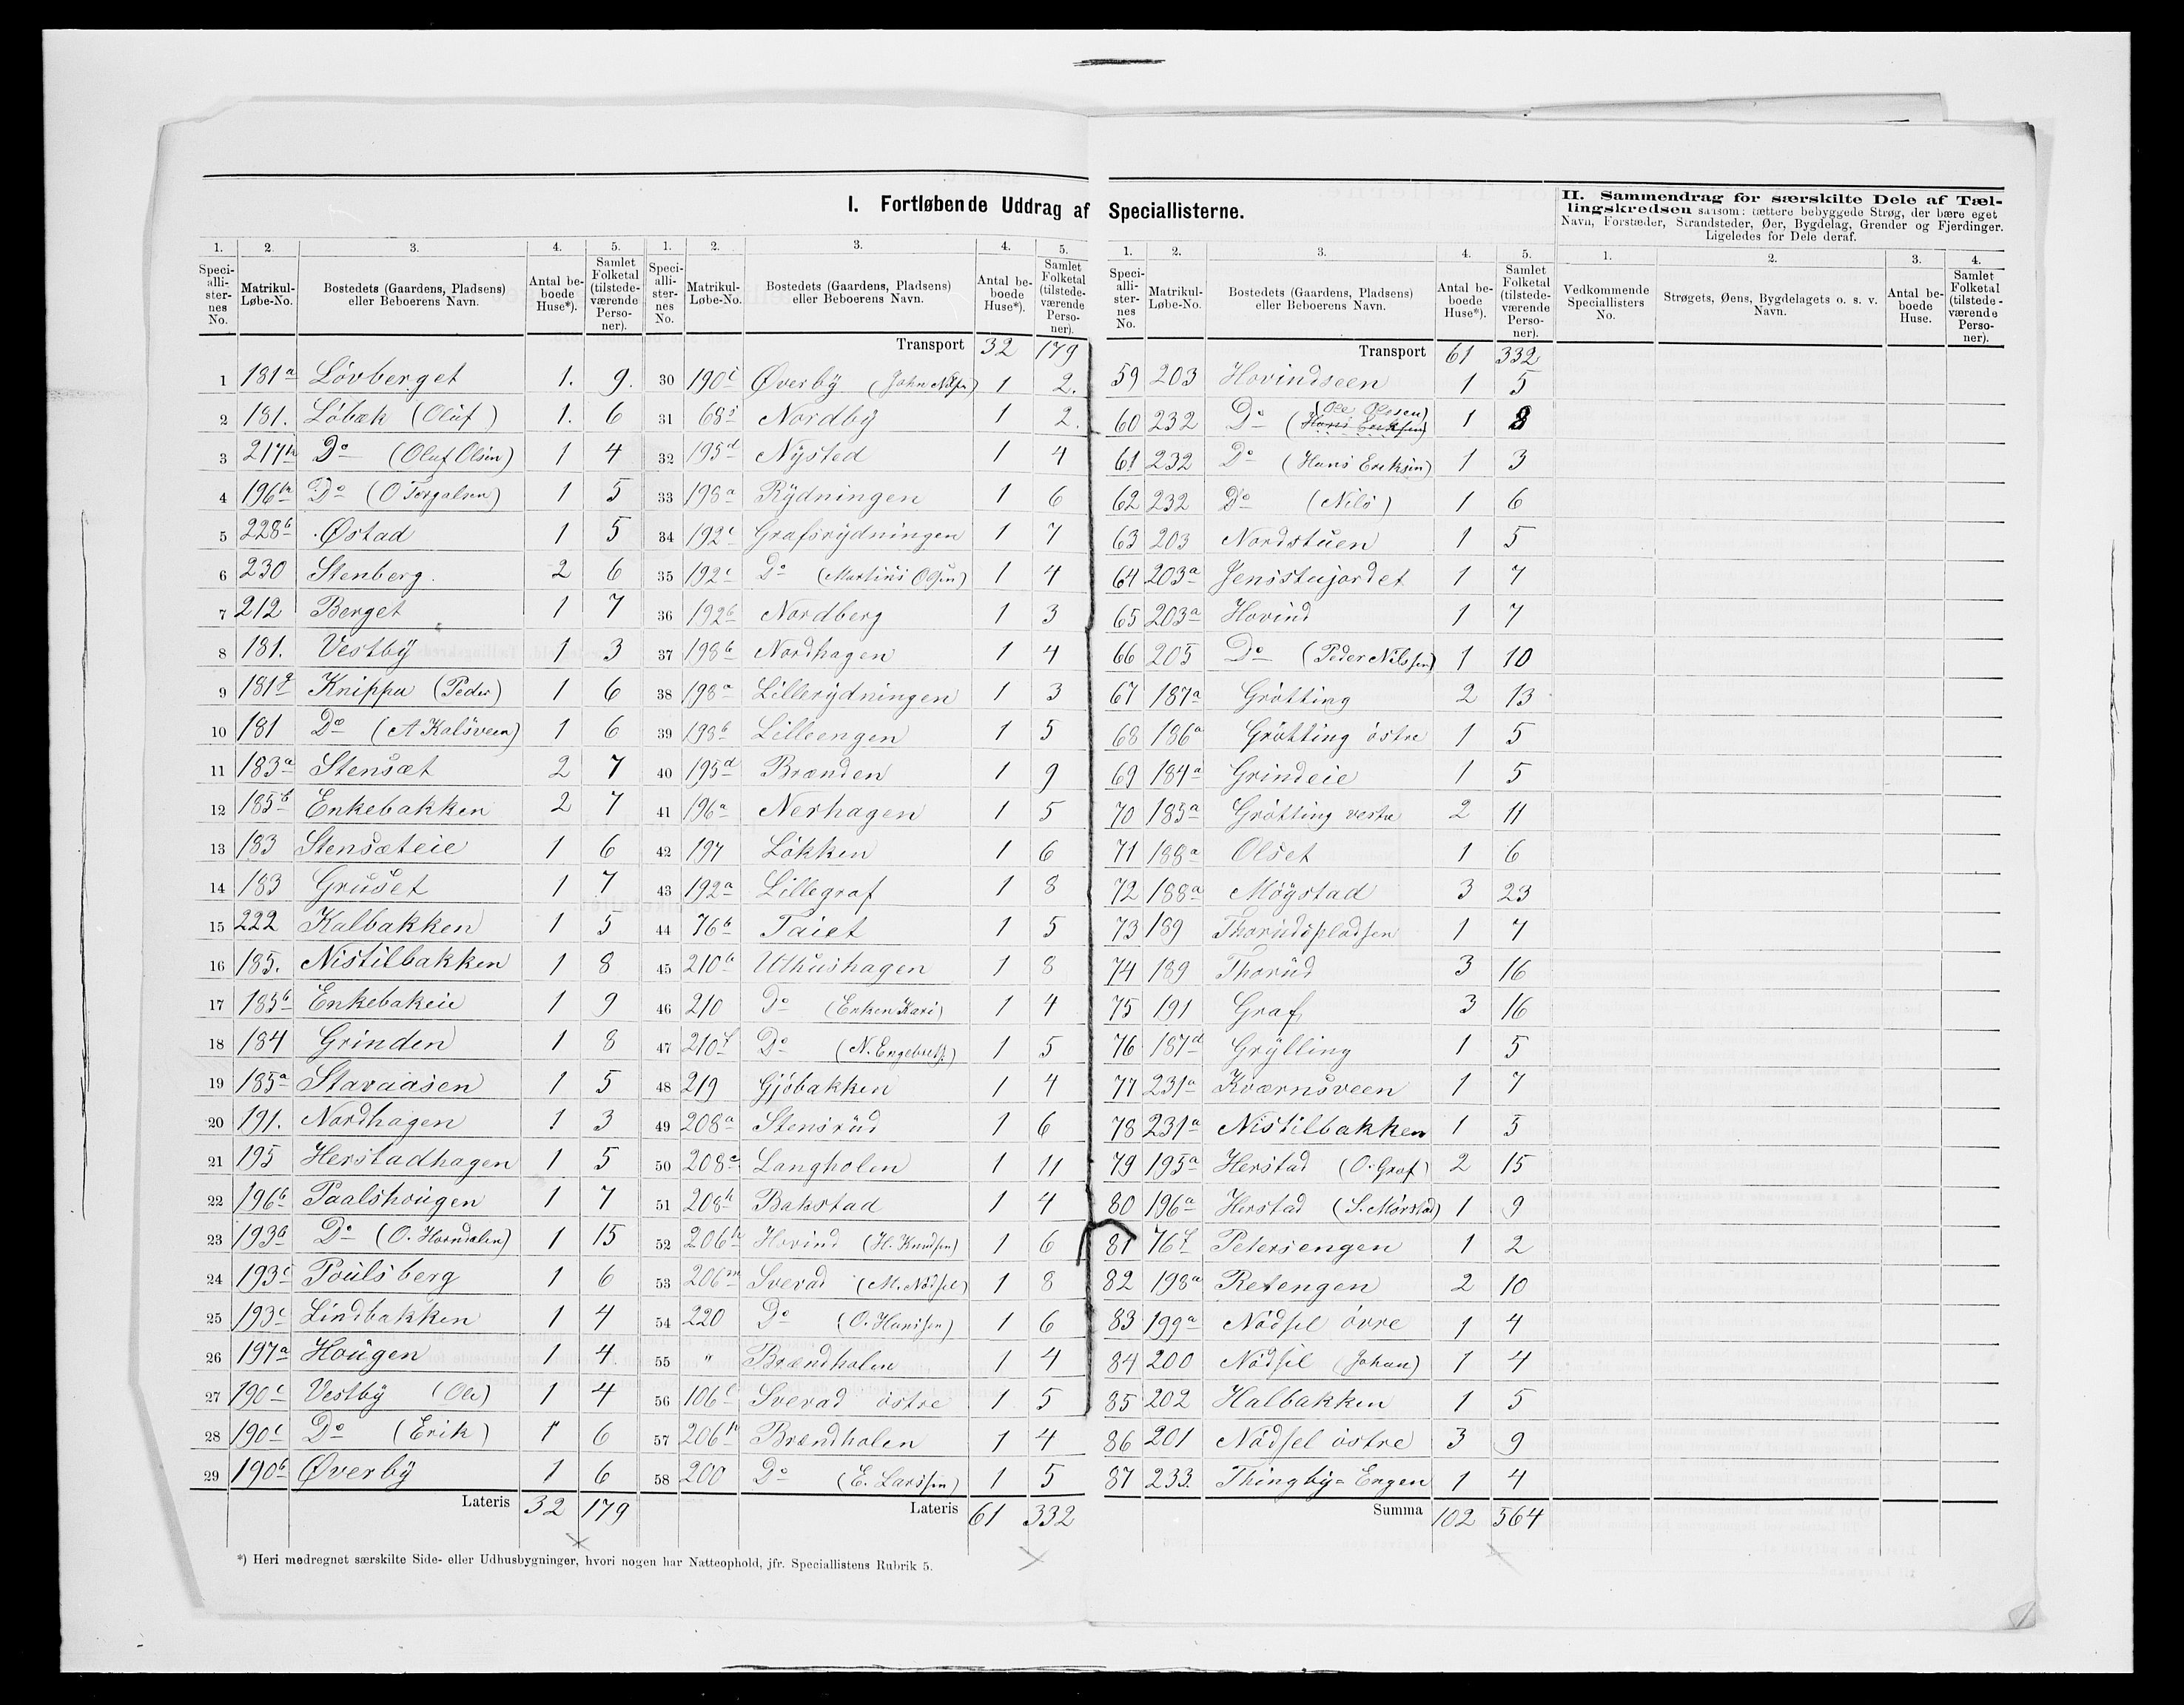 I. Fortløbende Uddrag af Speciallisterne.
II. Sammendrag for særskilte Dele af Tæl-
lingskredsen saasom: tættere bebyggede Strøg, der bære eget
Navn, Forstæder, Strandsteder, Øer, Bygdelag, Grender og Fjerdinger.
Ligeledes for Dele deraf.
1. 2. 3. 4. 5.
Speci-alli-ster-nes No. Matrikul-Løbe-No. Bostedets (Gaardens, Pladsens) eller Beboerens Navn. Antal be-boede Huse*). Samlet Folketal (tilstede-værende Perso-ner).
1 181a Lövberget 1. 9.
2 181. Löbæk (Oluf) 1. 6
3 217h Do (Oluf Olsen) 1 4
4 196b Do (O Torgalsen) 1 5
5 228b Østad 1 5
6 230 Stenberg. 2 6
7 212 Berget 1 7
8 181. Vestby 1 3
9 181g Knippa (Peder) 1 6
10 181 Do (A Kalsveen) 1 6
11 183a Stensæt 2 7
12 185b Enkebakken 2 7
13 183 Stensæteie 1 6
14 183 Gruset 1 7
15 222 Kalbakken 1 5
16 185. Nistilbakken 1 8
17 185b Enkebakeie 1 9
18 184 Grinden 1 8
19 185a Stavaasen 1 5
20 191. Nordhagen 1 3
21 195 Herstadhagen 1 5
22 196b Paalshougen 1 7
23 193b Do (O. Horndalen) 1 15
24 193c Poulsberg 1 6
25 193c Lindbakken 1 4
26 197a Hougen 1 4
27 190c Vestby (Ole) 1 4
28 190c Do (Erik) 1 6
29 190b Øverby 1 6
Lateris 32 179
1. 2. 3. 4. 5.
Speci-alli-ster-nes No. Matrikul-Løbe-No. Bostedets (Gaardens, Pladsens) eller Beboerens Navn. Antal be-boede Huse*). Samlet Folketal (tilstede-værende Perso-ner).
Transport 32 179
30 190c Øverby (John Nilsen) 1 2.
31 68i Nordby 1 2.
32 195d Nysted 1 4
33 198a Rydningen 1 6
34 192c Grafsrydningen 1 7
35 192c Do (Martinus Olsen) 1 4
36 192b Nordberg 1 3
37 198b Nordhagen 1 4
38 198a Lillerydningen 1 3
39 198b Lilleengen 1 5
40 195d Brænden 1 9
41 196a Nerhagen 1 5
42 197 Løkken 1 6
43 192a Lillegraf 1 8
44 76b Taiet 1 5
45 210b Uthushagen 1 8
46 210 Do (Enken Kari) 1 4
47 210f Do (N. Engebrets.) 1 5
48 219 Gjöbakken 1 4
49 208a Stensrud 1 6
50 208e Langholen 1 11
51 208h Bakstad 1 4
52 206h Hovind (H. Knudsen) 1 6
53 206m Sverad (M. Nødsel) 1 8
54 220 Do (O. Hanssen) 1 6
55 " Brændholen 1 4
56 106l Sverad östre 1 5
57 206h Brændholen 1 4
58 200 Do (E. Larssen) 1 5
Lateris 61 332
1. 2. 3. 4. 5.
Speci-alli-ster-nes No. Matrikul-Løbe-No. Bostedets (Gaardens, Pladsens) eller Beboerens Navn. Antal be-boede Huse*). Samlet Folketal (tilstede-værende Perso-ner).
Transport 61 332
59 203 Hovindseen 1 5
(Ole Olssen)
60 232 Do (Hans Eriksen) 1 8
61 232 Do (Hans Eriksen) 1 3
62 232 Do (Nils) 1 6
63 203 Nordstuen 1 5
64 203a Jensstujordet 1 7
65 203a Hovind 1 7
66 205 Do (Peder Nilssen) 1 10
67 187a Gröttig 2 13
68 186a Grötting östre 1 5
69 184a Grindeie 1 5
70 185a Grötting vestre 2 11
71 188a Olset 1 6
72 188a Møystad 3 23
73 189 Thorudspladsen 1 7
74 189 Thorud 3 16
75 191 Graf 3 16
76 187d Grylling 1 5
77 231a Kværnsveen 1 7
78 231a Nistilbakken 1 5
79 195a Herstad (O. Graf) 2 15
80 196a Herstad (S. Mørstad) 1 9
81 76f Petersengen 1 2
82 198a Retengen 2 10
83 199a Nødsel övre 1 4
84 200 Nødsel (Johan) 1 4
85 202 Halbakken 1 5
86 201 Nødsel östre 3 9
87 233. Thingby=Engen 1 4
Summa 102 564
1. 2. 3. 4.
Vedkommende Speciallisters No. Strøgets, Øens, Bygdelagets o. s. v. Navn. Antal be-boede Huse. Samlet Folketal (tilstede-værende Perso-ner).
*) Heri medregnet særskilte Side- eller Udhusbygninger, hvori nogen har Natteophold, jfr. Speciallistens Rubrik 5.